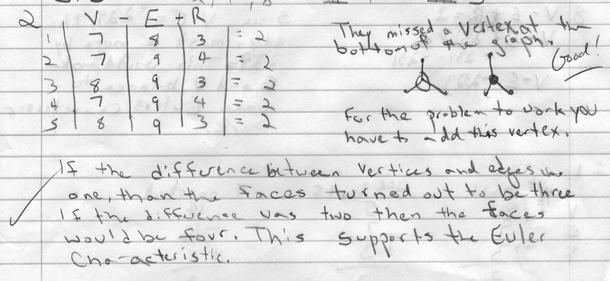 2 V - E + R
1 7 8 3 = 2
2 7 9 4 = 2
3 8 9 3 = 2
4 7 9 4 = 2
5 8 9 3 = 2
They missed a vertex at the
bottom of the graph.
Good!
For the problem to work you
have to add this vertex.
If the difference between vertices and edges was
one, than the faces turned out to be three
If the difference was two then the faces
would be four. This supports the Euler
Characteristic.